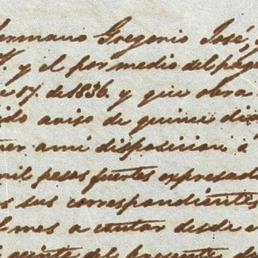 hermano Gregorio José, y
y el por medio del
de 1836, y que obra
aviso de quince dias
ami disposicion, a
mil pesos fuertes expresada
sus correspondientes
a contar desde e
del presente